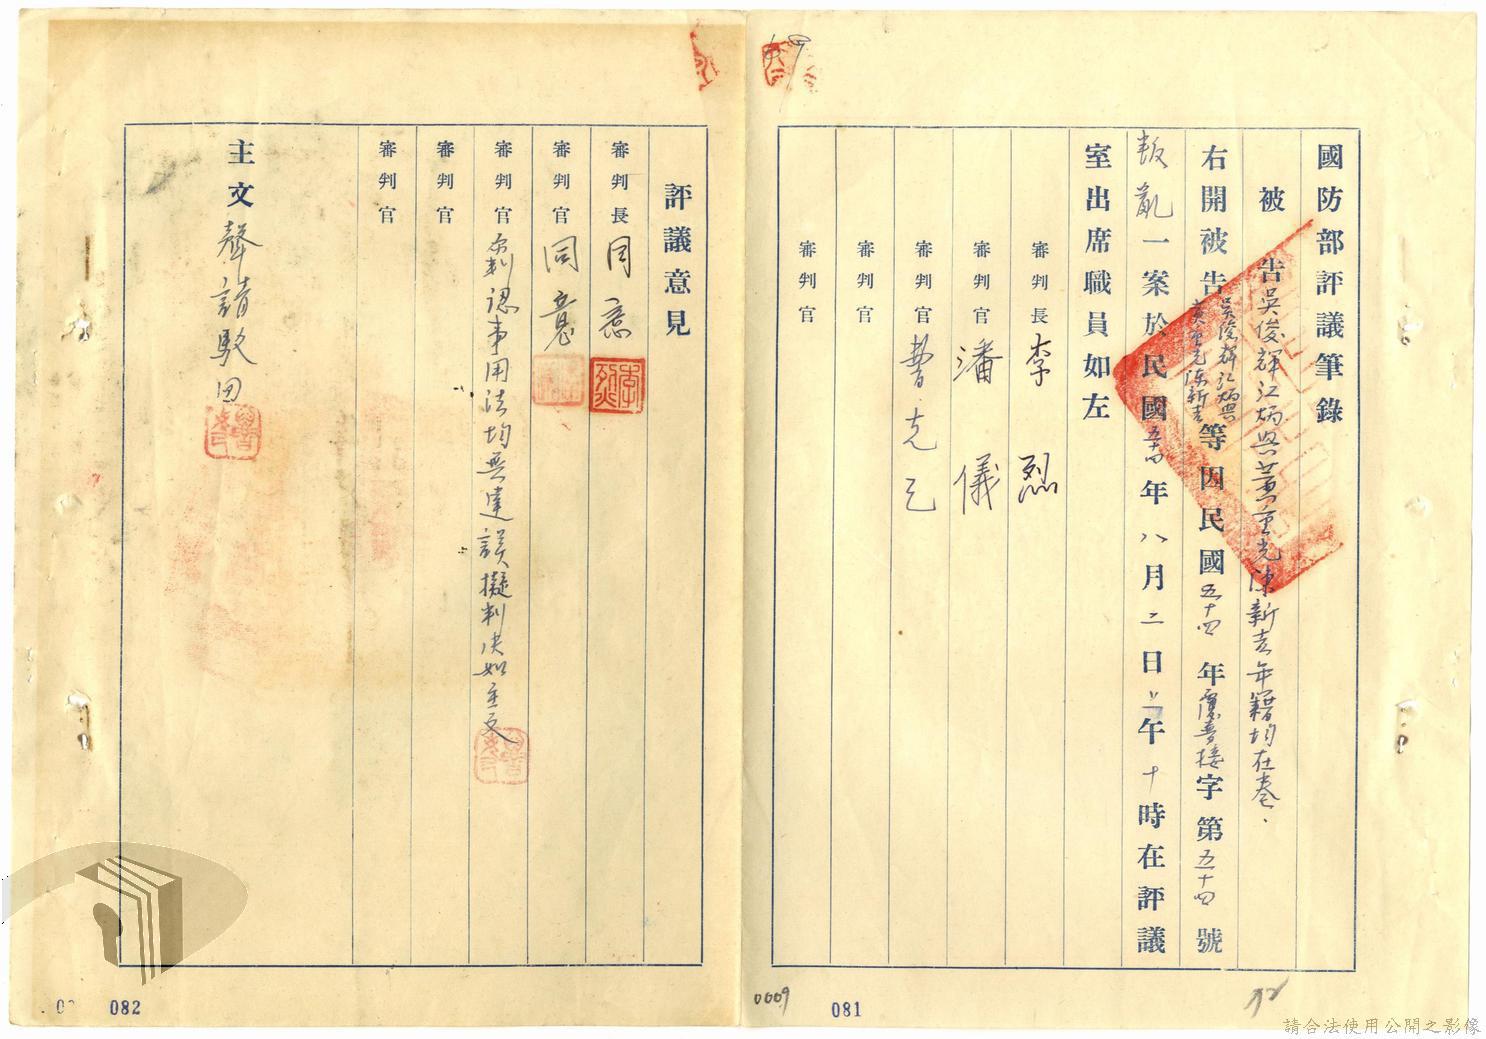 國防部評議筆錄
被告吳俊輝江炳興黃重光陳新吉年籍均在卷.
右開被告吳俊輝江炳興黃重光陳新吉等因民國五十四年覆普接字第五十四號
叛亂一案於民國五十四年八月二日上午十時在評議
室出席職員如左
審判長 李烈
審判官 潘儀
審判官 曹克己
審判官
審判官
0009
081
評議意見
審判長 同意
審判官 同意
審判官 原判認事用法均無違誤擬判決如主文
審判官
審判官
主文 聲請駁回
082
請合法使用公開之影像